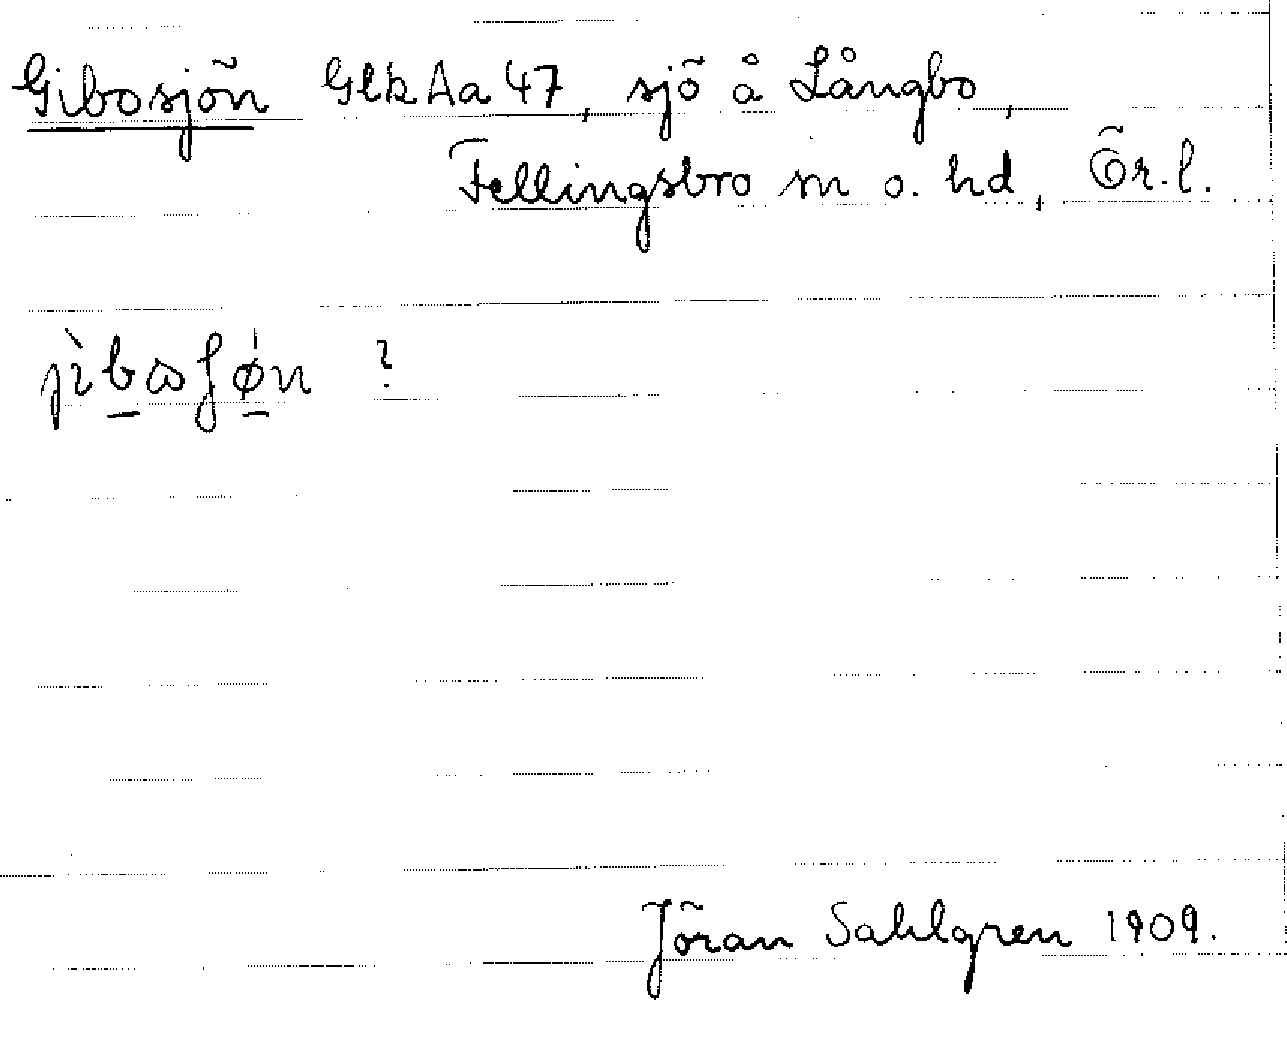 Gibosjön GEK Aa 47, sjö å Långbo,
Fellingsbro sn o. hd, Ör. l.
?
Jöran Sahlgren 1909.